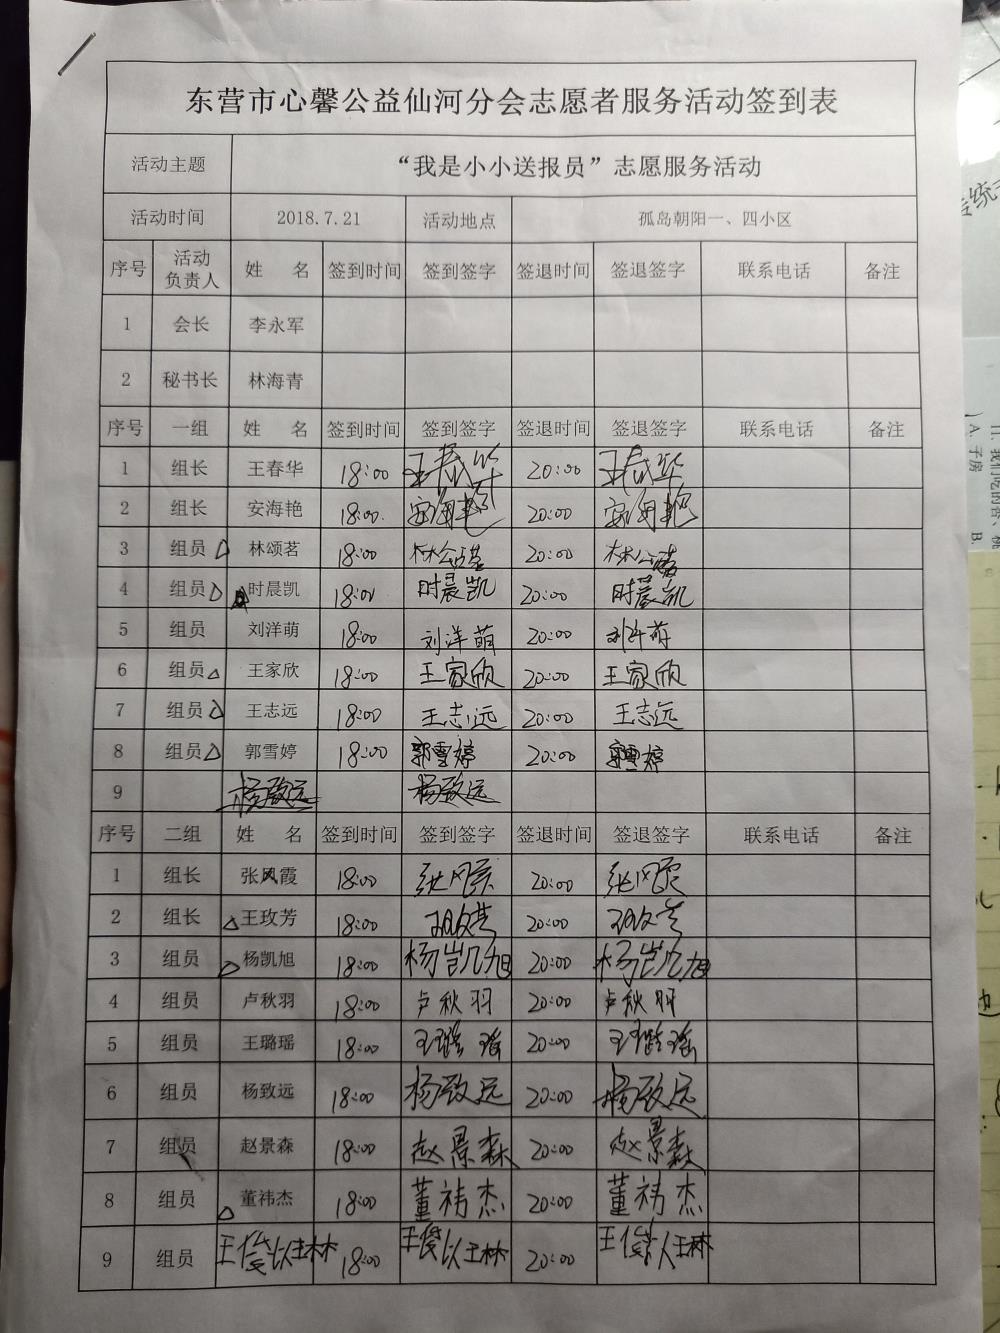 东营市心馨公益仙河分会志愿者服务活动签到表
活动主题 “我是小小送报员”志愿服务活动
活动时间 2018.7.21 活动地点 孤岛朝阳一、四小区
序号 活动负责人 姓 名 签到时间 签到签字 签退时间 签退签字 联系电话 备注
1 会长 李永军
2 秘书长 林海青
序号 一组 姓 名 签到时间 签到签字 签退时间 签退签字 联系电话 备注
1 组长 王春华 18:00 王春华 20:00 王春华
2 组长 安海艳 18:00 安海艳 20:00 安海艳
3 组员 林颂茗 18:00 林颂茗 20:00 林颂茗
4 组员 时晨凯 18:00 时晨凯 20:00 时晨凯
5 组员 刘洋萌 18:00 刘洋萌 20:00 刘洋萌
6 组员 王家欣 18:00 王家欣 20:00 王家欣
7 组员 王志远 18:00 王志远 20:00 王志远
8 组员 郭雪婷 18:00 郭雪婷 20:00 郭雪婷
9 杨致远 杨致远
序号 二组 姓 名 签到时间 签到签字 签退时间 签退签字 联系电话 备注
1 组长 张风霞 18:00 张风霞 20:00 张风霞
2 组长 王玫芳 18:00 王玫芳 20:00 王玫芳
3 组员 杨凯旭 18:00 杨凯旭 20:00 杨凯旭
4 组员 卢秋羽 18:00 卢秋羽 20:00 卢秋羽
5 组员 王璐瑶 18:00 王璐瑶 20:00 王璐瑶
6 组员 杨致远 18:00 杨致远 20:00 杨致远
7 组员 赵景森 18:00 赵景森 20:00 赵景森
8 组员 董祎杰 18:00 董祎杰 20:00 董祎杰
9 组员 18:00 20:00